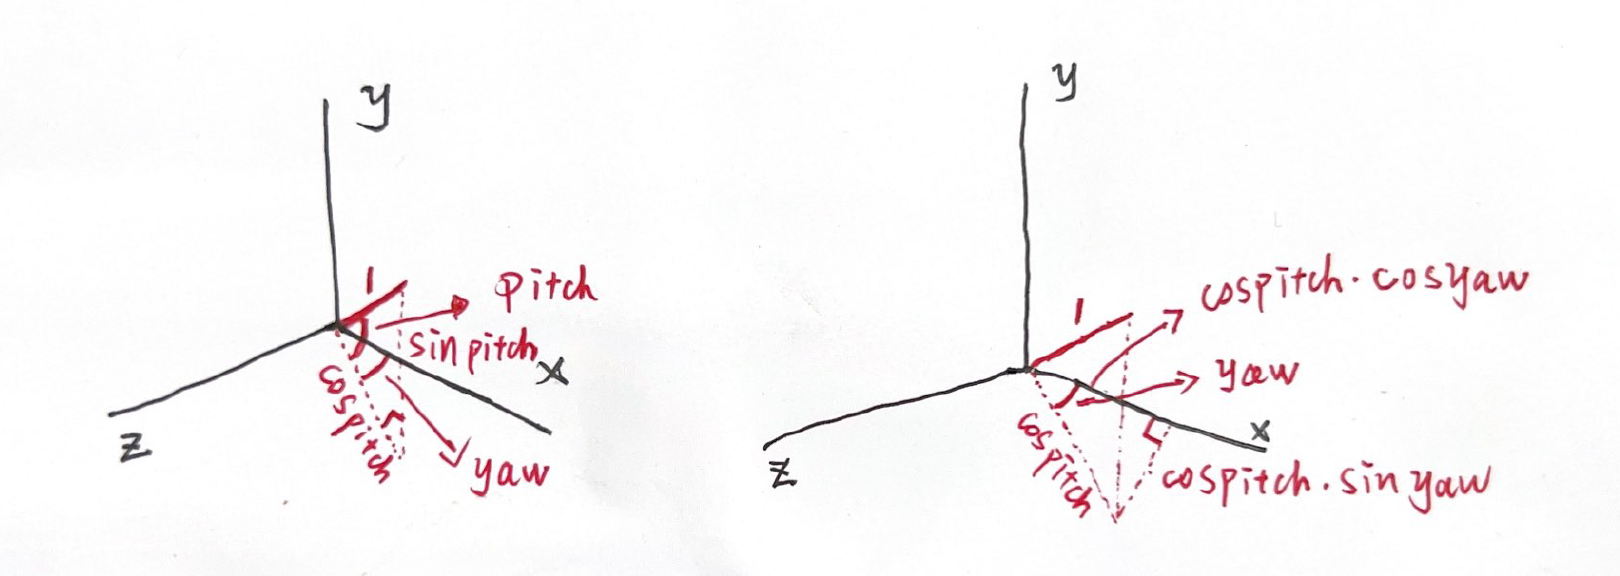 y
1
pitch
sin pitch
x
cospitch
z
yaw
y
cospitch · cosyaw
1
yaw
x
cospitch
z
cospitch . sin yaw